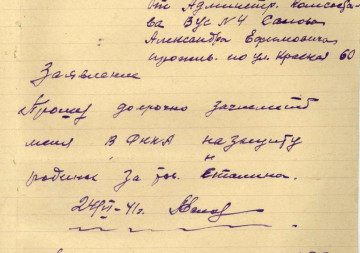 от Администр. комсостава
ва ВУС №4 Санова
Александра Ефимовича
прожив. по ул. Красная 60
Заявление
Прошу досрочно зачислить
меня в РККА на защиту
родины за тов. Сталина.
24/VI-41г.